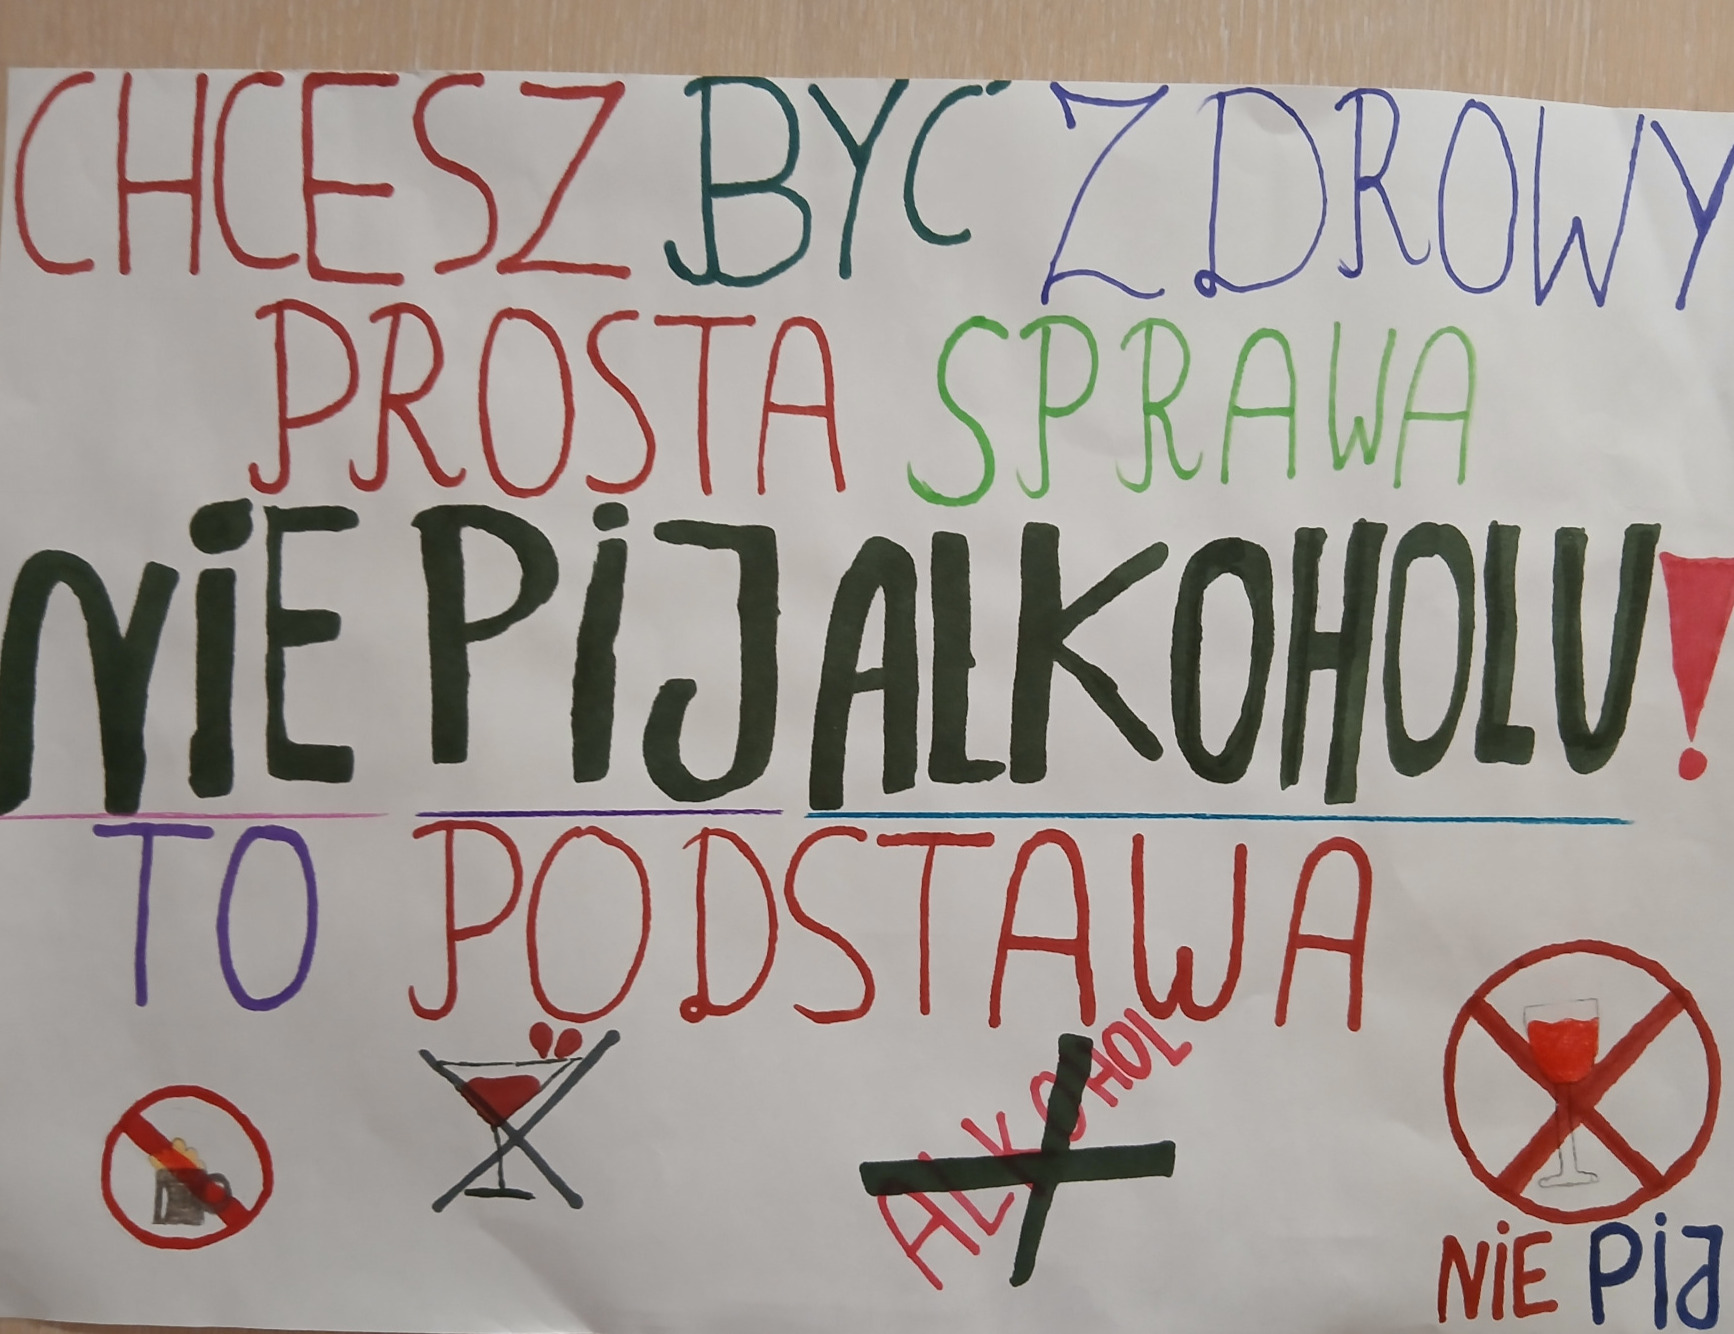 CHCESZ BYĆ ZDROWY
PROSTA SPRAWA
NiE PiJ ALKOHOLU!
TO PODSTAWA
ALKOHOL
NiE PiJ